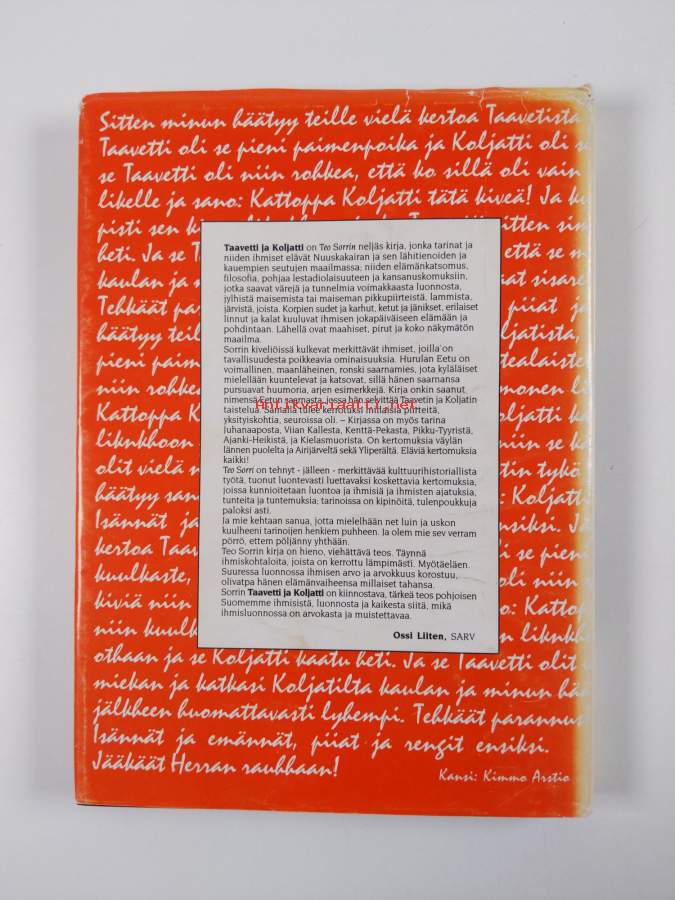 Sitten minun häätyy teille vielä kertoa Taavetista
Taavetti oli se pieni paimenpoika ja Koljatti oli
se Taavetti oli niin rohkea, että ko sillä oli vain
likelle ja sano: Kattoppa Koljatti tätä kiveä! Ja
pisti sen
heti. Ja se
kaulan ja
Tehkäät
häätyy
pieni
niin rohkea
Kattoppa
liknkhoon
olit vielä
häätyy
Isännät ja
kertoa
kuulkaste,
kiviä niin
niin
Taavetti ja Koljatti on Teo Sorrin neljäs kirja, jonka tarinat ja
niiden ihmiset elävät Nuuskakairan ja sen lähitienoiden ja
kauempien seutujen maailmassa; niiden elämänkatsomus,
filosofia, pohjaa lestadiolaisuuteen ja kansanuskomuksiin,
jotka saavat värejä ja tunnelmia voimakkaasta luonnosta,
jylhistä maisemista tai maiseman pikkupiirteistä, lammista,
järvistä, joista. Korpien sudet ja karhut, ketut ja jänikset, erilaiset
linnut ja kalat kuuluvat ihmisen jokapäiväiseen elämään ja
pohdintaan. Lähellä ovat maahiset, pirut ja koko näkymätön
maailma.
Sorrin kiveliöissä kulkevat merkittävät ihmiset, joilla on
tavallisuudesta poikkeavia ominaisuuksia. Hurulan Eetu on
voimallinen, maanläheinen, ronski saarnamies, jota kyläläiset
mielellään kuuntelevat ja katsovat, sillä hänen saarnansa
pursuavat huumoria, arjen esimerkkejä. Kirja onkin saanut
nimensä Eetun saarnasta, jossa hän selvittää Taavetin ja Koljatin
taistelua. Samalla tulee kerrotuksi millaisia piirteitä,
yksityiskohtia, seuroissa oli. – Kirjassa on myös tarina
Juhanaaposta, Viian Kallesta, Kenttä-Pekasta, Pikku-Tyyristä,
Ajanki-Heikistä, ja Kielasmuorista. On kertomuksia väylän
lännen puolelta ja Airijärveltä sekä Yliperältä. Eläviä kertomuksia
kaikki!
Teo Sorri on tehnyt - jälleen - merkittävää kulttuurihistoriallista
työtä, tuonut luontevasti luettavaksi koskettavia kertomuksia,
joissa kunnioitetaan luontoa ja ihmisiä ja ihmisten ajatuksia,
tunteita ja tuntemuksia; tarinoissa on kipinöitä, tulenpoukkuja
paloksi asti.
Ja mie kehtaan sanua, jotta mielelhään net luin ja uskon
kuulheeni tarinoijen henkiem puhheen. Ja olem mie sev verram
pörrö, ettem pöljänny yhthään.
Teo Sorrin kirja on hieno, viehättävä teos. Täynnä
ihmiskohtaloita, joista on kerrottu lämpimästi. Myötäeläen.
Suuressa luonnossa ihmisen arvo ja arvokkuus korostuu,
olivatpa hänen elämänvaiheensa millaiset tahansa.
Sorrin Taavetti ja Koljatti on kiinnostava, tärkeä teos pohjoisen
Suomemme ihmisistä, luonnosta ja kaikesta siitä, mikä
ihmisluonnossa on arvokasta ja muistettavaa.
Ossi Liiten, SARV
antikvariaatti.net
othaan ja se Koljatti kaatu heti. Ja se Taavetti olit
miekan ja katkasi Koljatilta kaulan ja minun
jälkheen huomattavasti lyhempi. Tehkäät parannus
Isännät ja emännät, piiat ja rengit ensiksi.
Jääkäät Herran rauhhaan!
Kansi: Kimmo Arstio